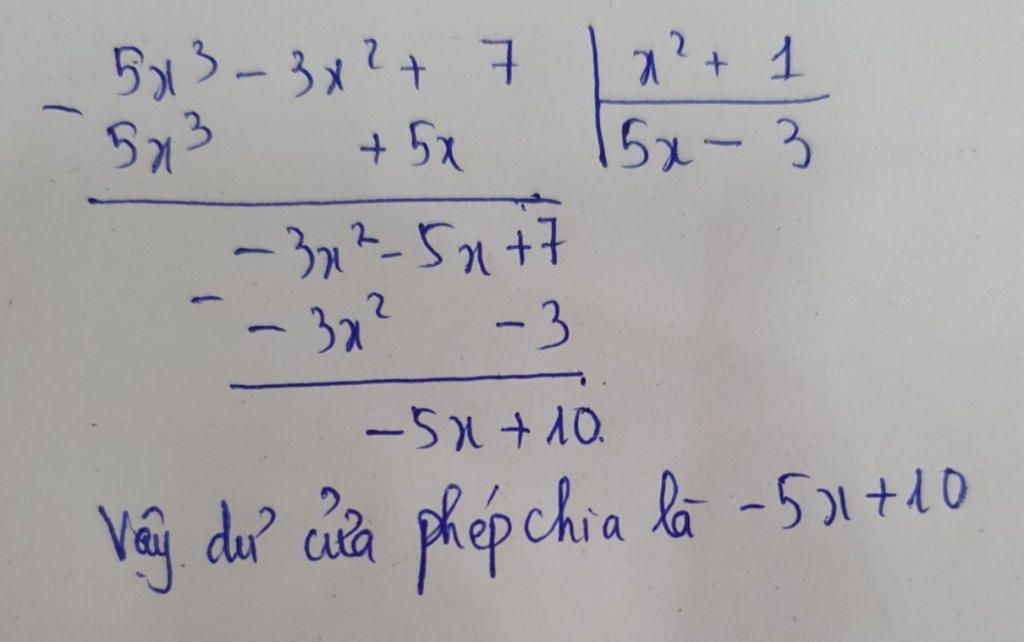 5x³ - 3x² + 7 | x² + 1
- 5x³ + 5x | 5x - 3
- 3x² - 5x + 7
- - 3x² - 3
- 5x + 10.
Vậy dư của phép chia là - 5x + 10